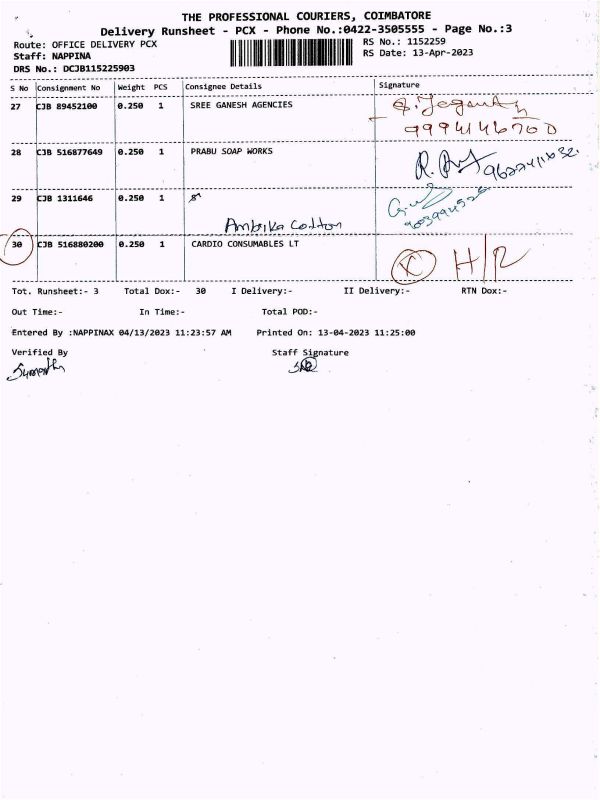 THE PROFESSIONAL COURIERS, COIMBATORE
Delivery Runsheet - PCX - Phone No.:0422-3505555 - Page No.:3
Route: OFFICE DELIVERY PCX RS No.: 1152259
Staff: NAPPINA RS Date: 13-Apr-2023
DRS No.: DCJB115225903
S No Consignment No Weight PCS Consignee Details Signature
27 CJB 89452100 0.250 1 SREE GANESH AGENCIES
9994146700
28 CJB 516877649 0.250 1 PRABU SOAP WORKS
29 CJB 1311646 0.250 1
Ambika Cotton
30 CJB 516880200 0.250 1 CARDIO CONSUMABLES LT
H/R
Tot. Runsheet:- 3 Total Dox:- 30 I Delivery:- II Delivery:- RTN Dox:-
Out Time:- In Time:- Total POD:-
Entered By :NAPPINAX 04/13/2023 11:23:57 AM Printed On: 13-04-2023 11:25:00
Verified By Staff Signature